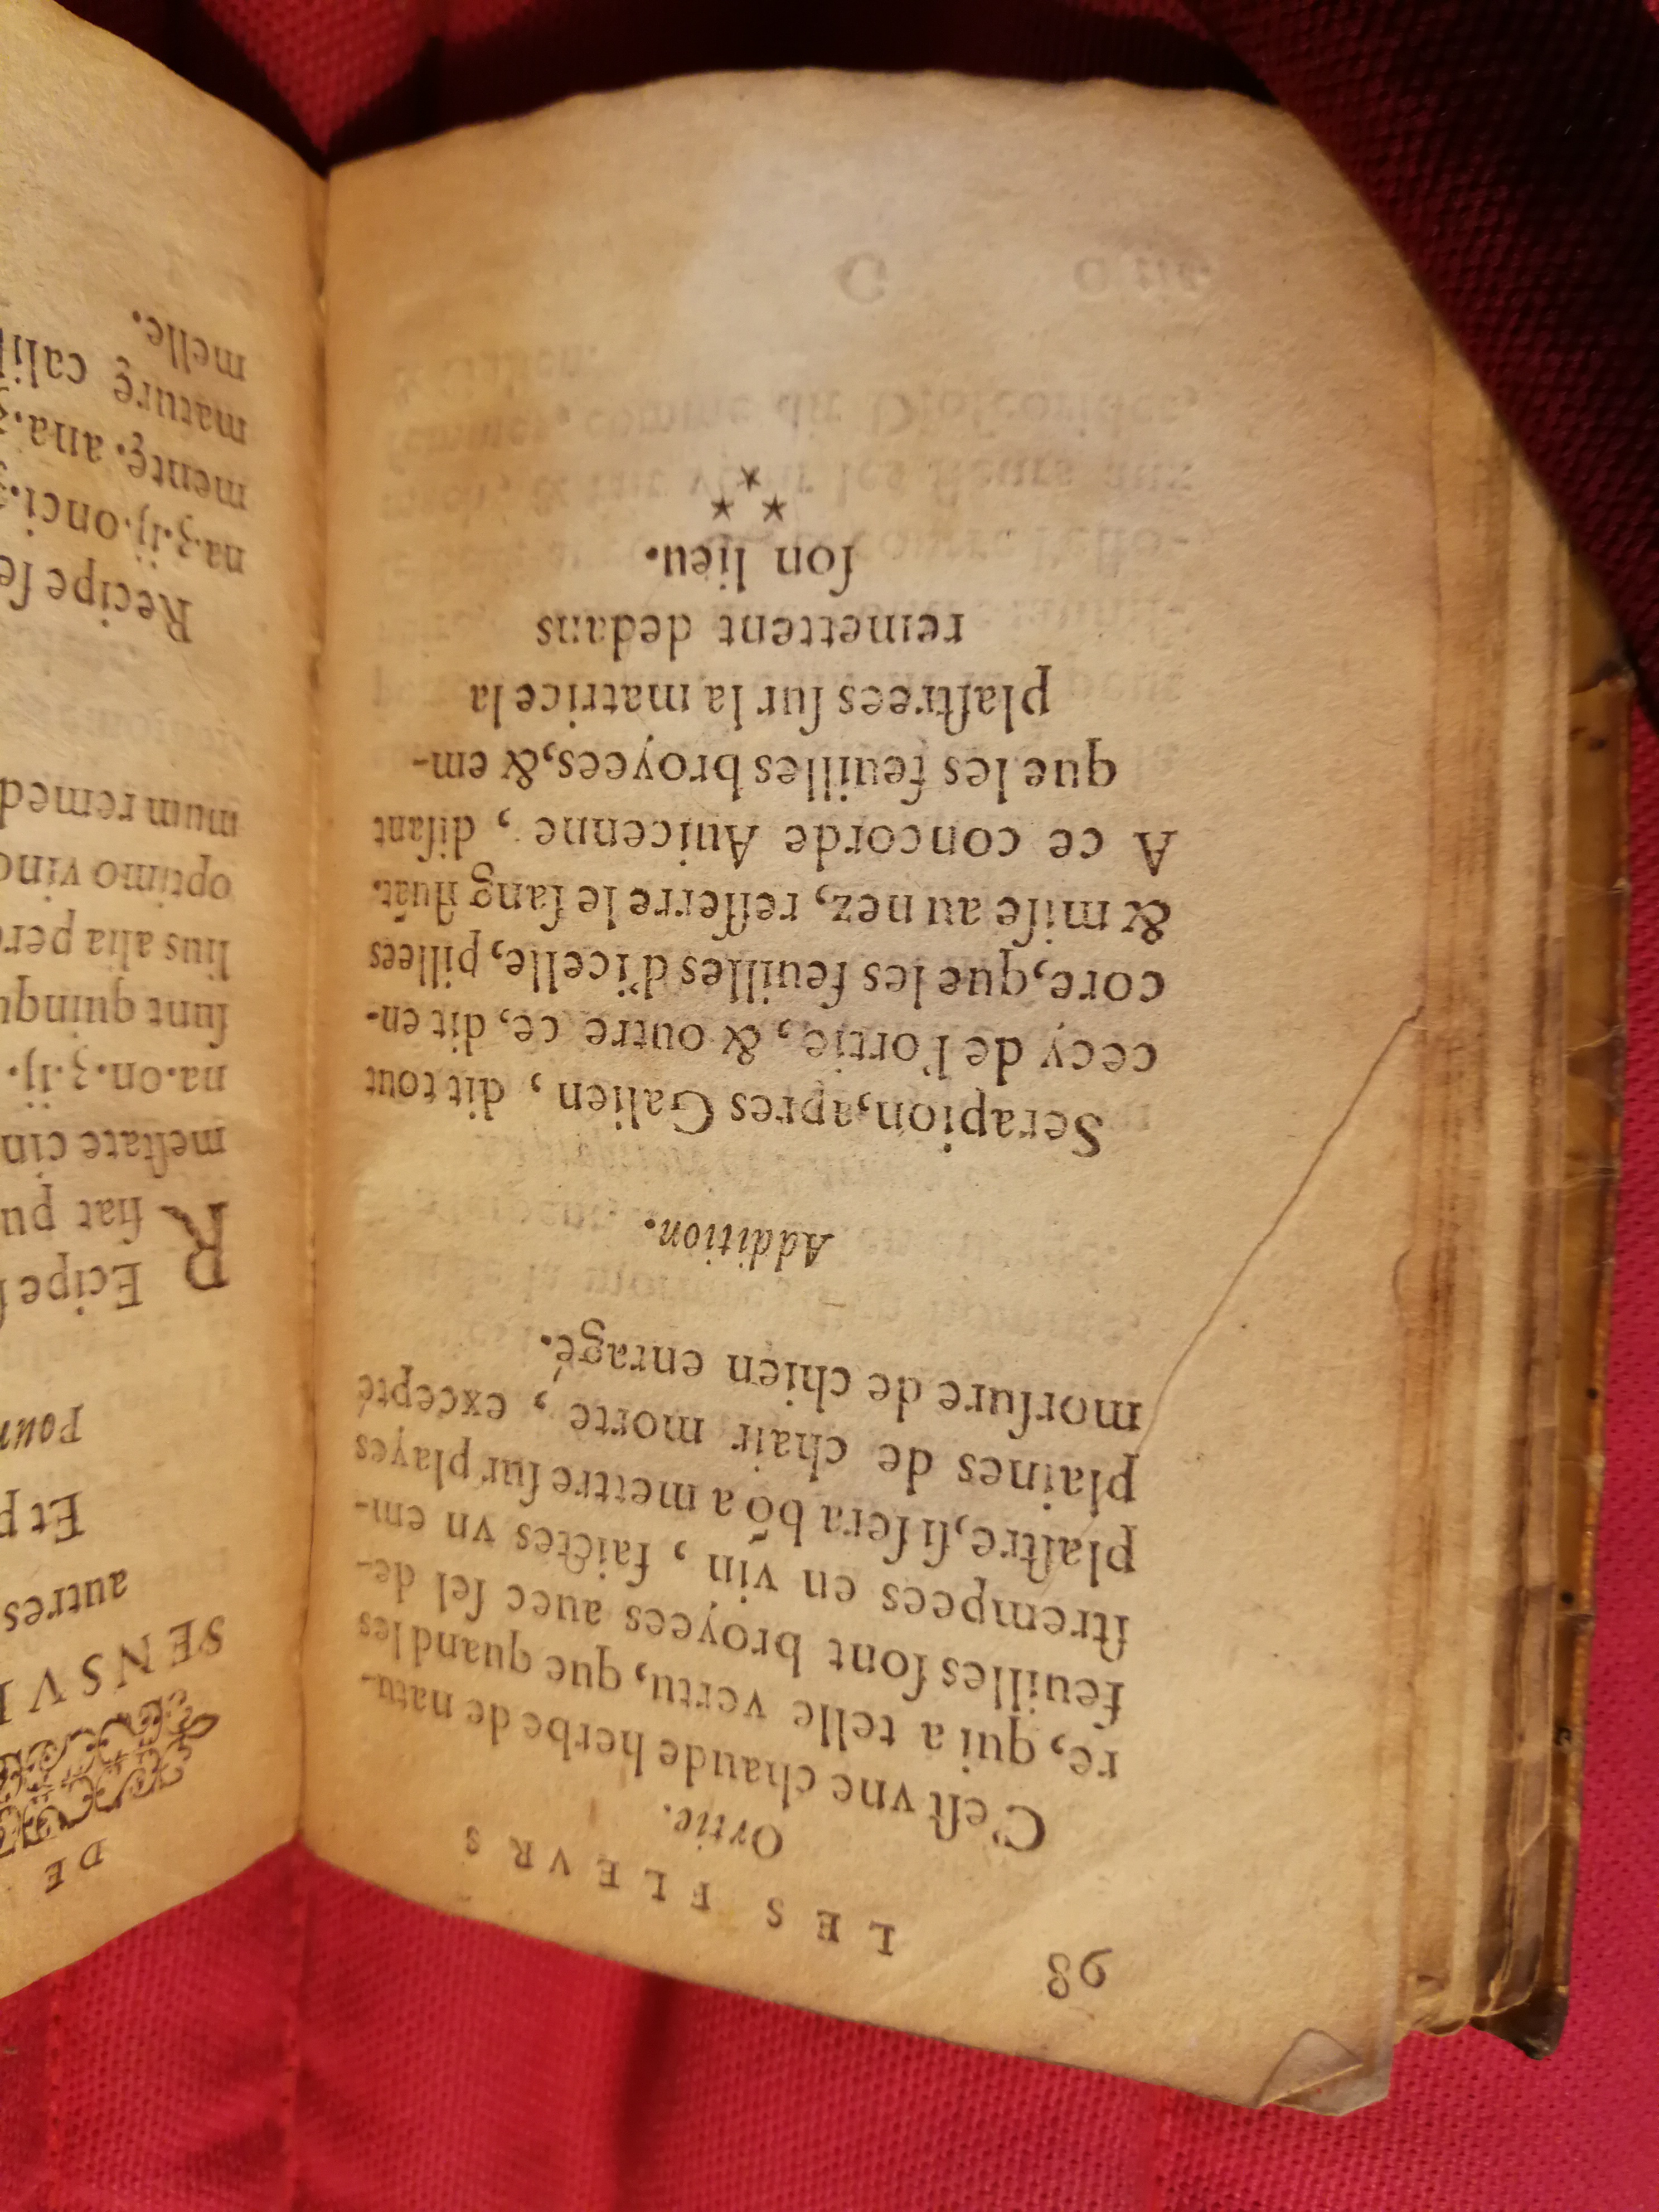 98
LES FLEVRS
Ortie.
C'eſt vne chaude herbe de natu-
re, qui a telle vertu, que quand les
feuilles ſont broyees auec ſel de-
ſtrempees en vin, faictes vn em-
plaſtre, ſi ſera bõ a mettre ſur playes
plaines de chair morte, excepté
morſure de chien enragé.
Addition.
Serapion, apres Galien, dit tout
cecy de l'ortie, & outre ce, dit en-
core, que les feuilles d'icelle, pillees
& miſe au nez, reſſerre le ſang fluãt.
A ce concorde Auicenne, diſant
que les feuilles broyees, & em-
plaſtrees ſur la matrice la
remettent dedans
ſon lieu.
* *
*
DE
SENSV
autres
Et p
Pour
REcipe ſ
fiat pu
meſtate cin
na.on.ʒ.ij.
ſunt quinqu
lius alia per
optimo vino
mum remed
Recipe ſe
na.ʒ.ij.onci.
mentę. ana.
maturę cali
melle.